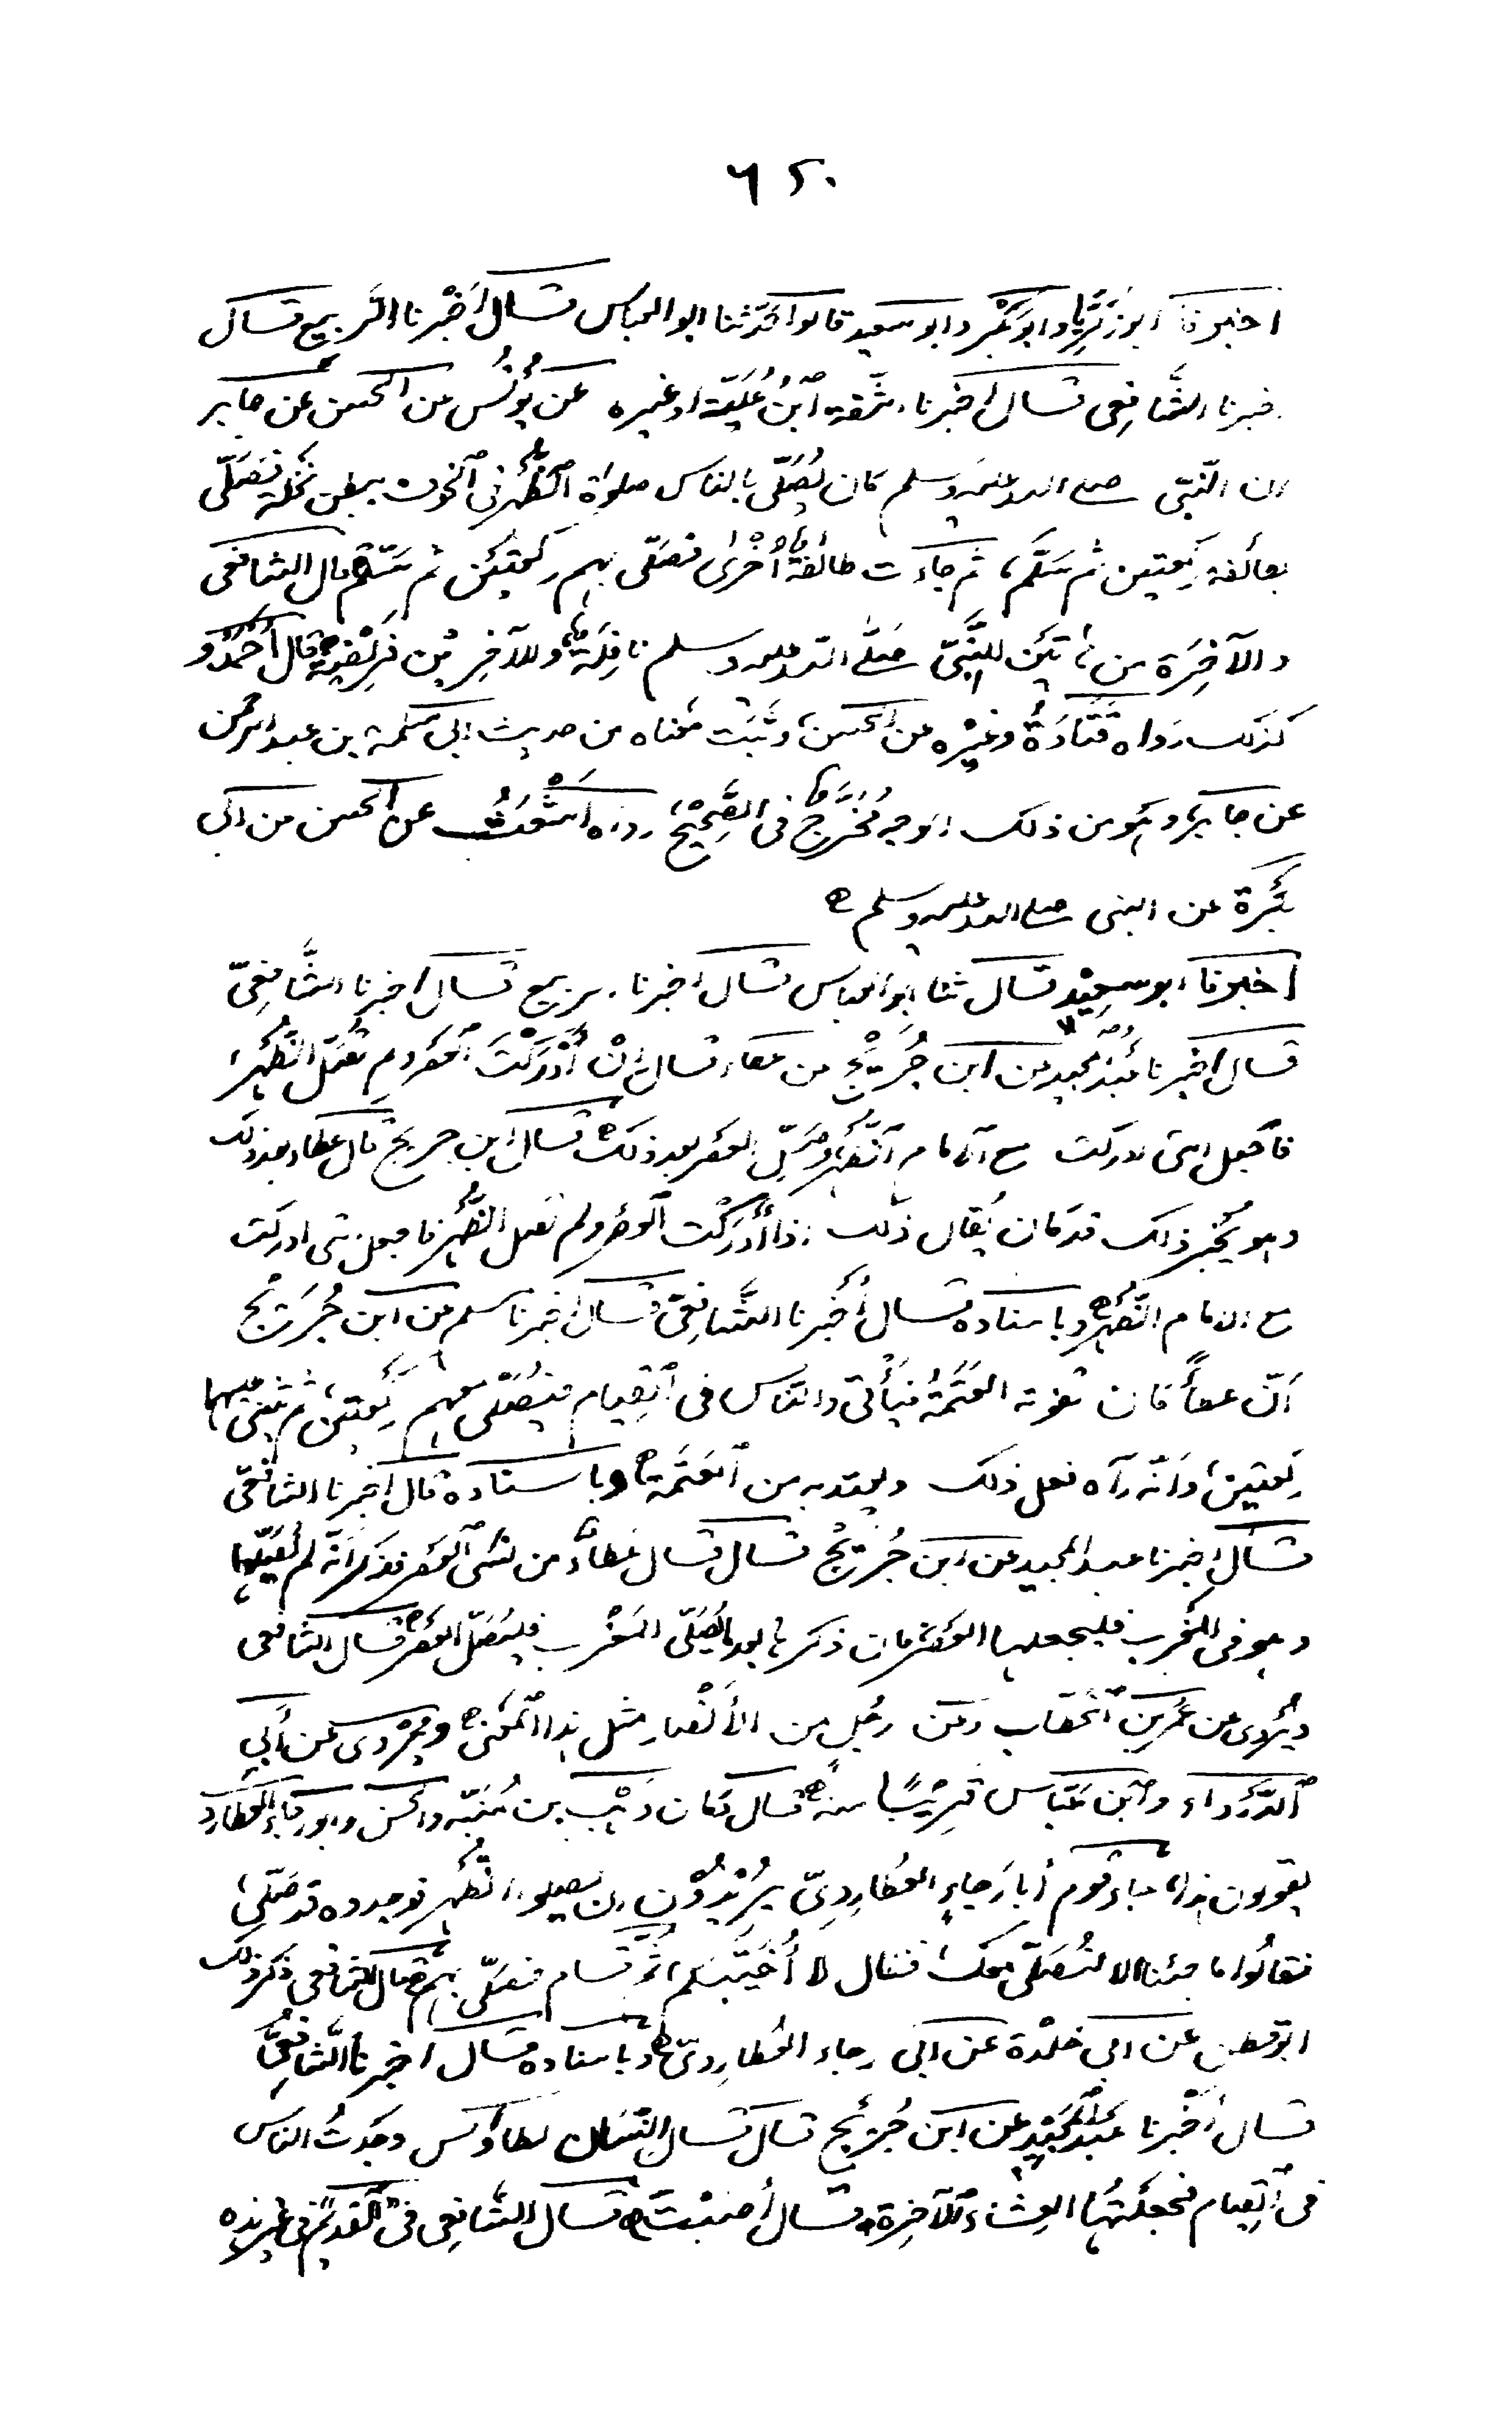 ٦٢٠
اخبرنا ابو زكريا وابو بكر وابو سعيد قالوا حدثنا ابو العباس قال أخبرنا الربيع قال
خبرنا الشافعي قال أخبرنا الثقة ابن علية او غيره عن يونس عن الحسن عن جابر
ان النبي صلى الله عليه وسلم كان يصلي بالناس صلوة الظهر في الخوف ببطن نخلة فصلى
بطائفة ركعتين ثم سلم، ثم جاءت طائفة أخرى فصلى بهم ركعتين ثم سلم قال الشافعي
والآخرة من هاتين للنبي صلى الله عليه وسلم نافلة وللآخرين فريضة قال أحمد و
كذلك رواه قتادة وغيره عن الحسن، وثبت معناه من حديث ابي سلمة بن عبد الرحمن
عن جابر، وهو من ذلك الوجه مخرج في الصحيح، ورواه اشعث عن الحسن عن ابي
بكرة عن النبي صلى الله عليه وسلم ه
اخبرنا ابو سعيد قال ثنا ابو العباس قال اخبرنا الربيع قال اخبرنا الشافعي
قال اخبرنا عبد المجيد عن ابن جريج عن عطاء قال إن أدركت العصر ولم تصل الظهر
فاجعل التي ادركت مع الامام الظهر وصل العصر بعد ذلك ه قال ابن جريج قال عطاء بعد ذلك
وهو يخبر ذلك قد كان يقال ذلك اذا أدركت العصر ولم تصل الظهر فاجعل التي ادركت
مع الامام الظهر ه وباسناده قال أخبرنا الشافعي قال اخبرنا مسلم عن ابن جريج
أن عطاء كان تفوته العتمة فيأتي والناس في القيام فيصلي معهم ركعتين، ثم يبني عليها
ركعتين، وأنه رآه فعل ذلك ويعتد به من العتمة ه وباسناده قال اخبرنا الشافعي
قال اخبرنا عبد المجيد عن ابن جريج قال قال عطاء من نسي العصر فذكر أنه لم يصلها
وهو في المغرب فليجعلها العصر فان ذكرها بعد أن يصلي المغرب فليصل العصر ه قال الشافعي
ويروى عن عمر بن الخطاب وعن رجل من الأنصار مثل هذا المعنى ه ويروى عن أبي
الدرداء وابن عباس قريبا منه ه قال كان وهب بن منبه والحسن وابو رجاء العطاردي
يقولون هذا، جاء قوم أبا رجاء العطاردي يريدون ان يصلوا الظهر فوجدوه قد صلى،
فقالوا ما جئنا الا لنصلي معك، فقال لا أخيبكم، ثم قام فصلى بهم ه قال الشافعي ذكر ذلك
ابو قطن عن ابي خلدة عن ابي رجاء العطاردي ه وباسناده قال اخبرنا الشافعي
قال أخبرنا عبد المجيد عن ابن جريج قال قال إنسان لطاوس وجدت الناس
في القيام فجعلتها العشاء الآخرة، قال أصبت ه قال الشافعي في القديم في غير هذه